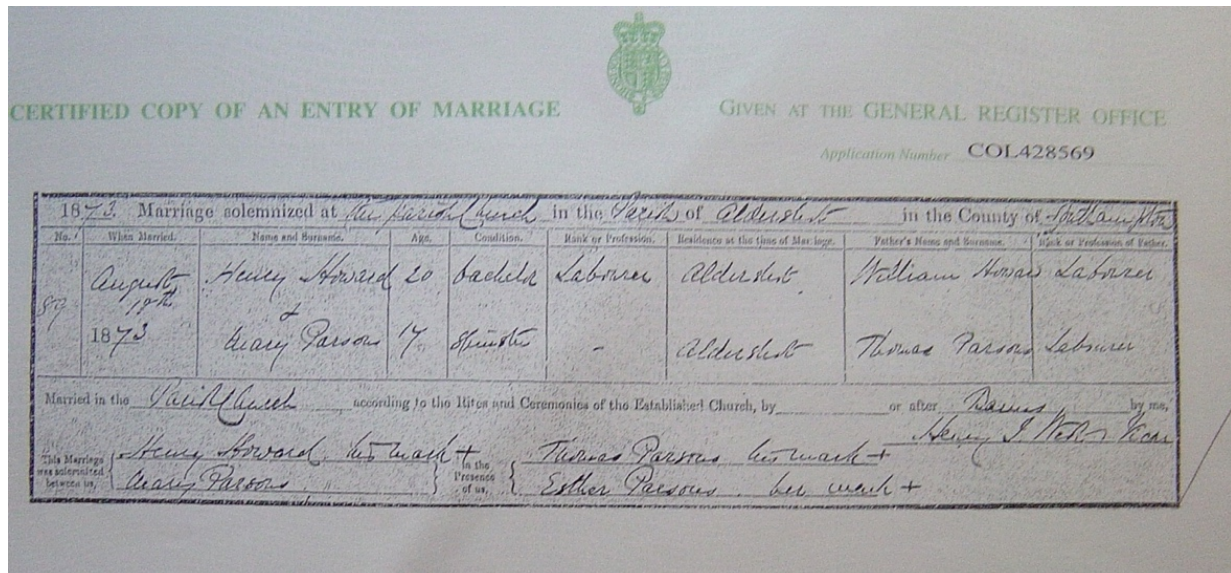 CERTIFIED COPY OF AN ENTRY OF MARRIAGE
GIVEN AT THE GENERAL REGISTER OFFICE
Application Number COL428569
1873. Marriage solemnized at the Parish Church in the Parish of Aldershot in the County of Southampton
No. When Married. Name and Surname. Age. Condition. Rank or Profession. Residence at the time of Marriage. Father's Name and Surname. Rank or Profession of Father.
August Henry Howard 20 bachelor Labourer Aldershot William Howard Labourer
&
1873 Mary Parsons 17 Spinster - Aldershot Thomas Parsons Labourer
Married in the Parish Church according to the Rites and Ceremonies of the Established Church, by or after Banns by me,
Henry J. Vicar
This Marriage was solemnized between us, Henry Howard his mark + In the Presence of us, Thomas Parsons his mark +
Mary Parsons Esther Parsons her mark +